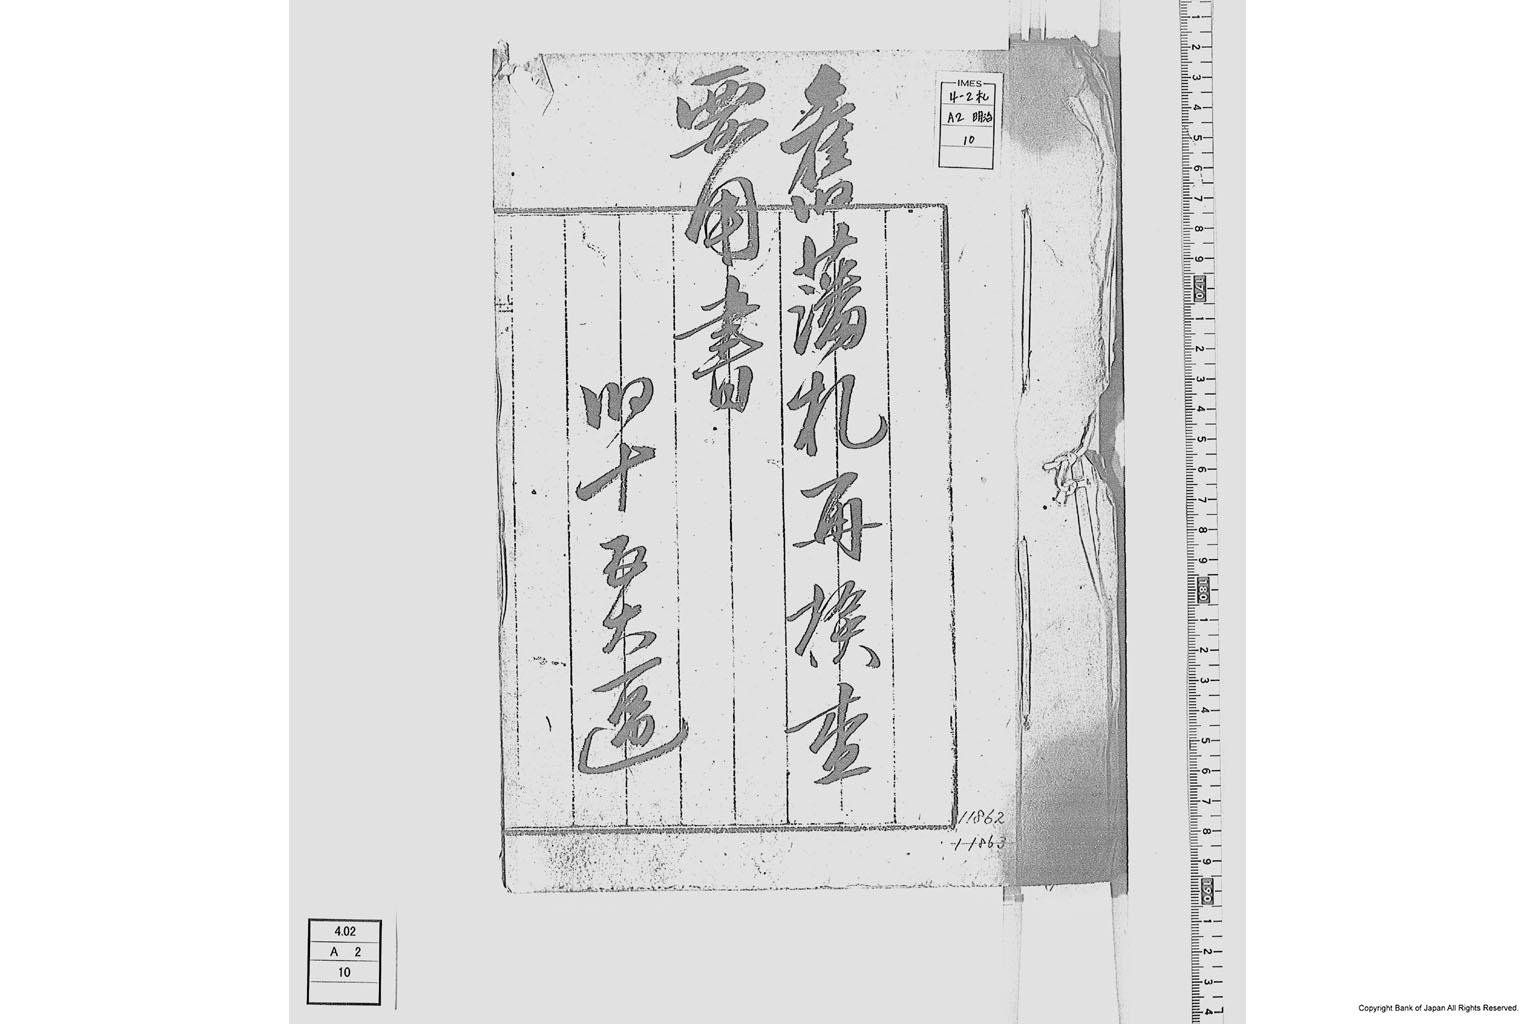 舊藩札再検査
要用書
四十五大區
IMES
4-2札
A2 明治
10
11862
11863
4.02
A 2
10
Copyright Bank of Japan All Rights Reserved.